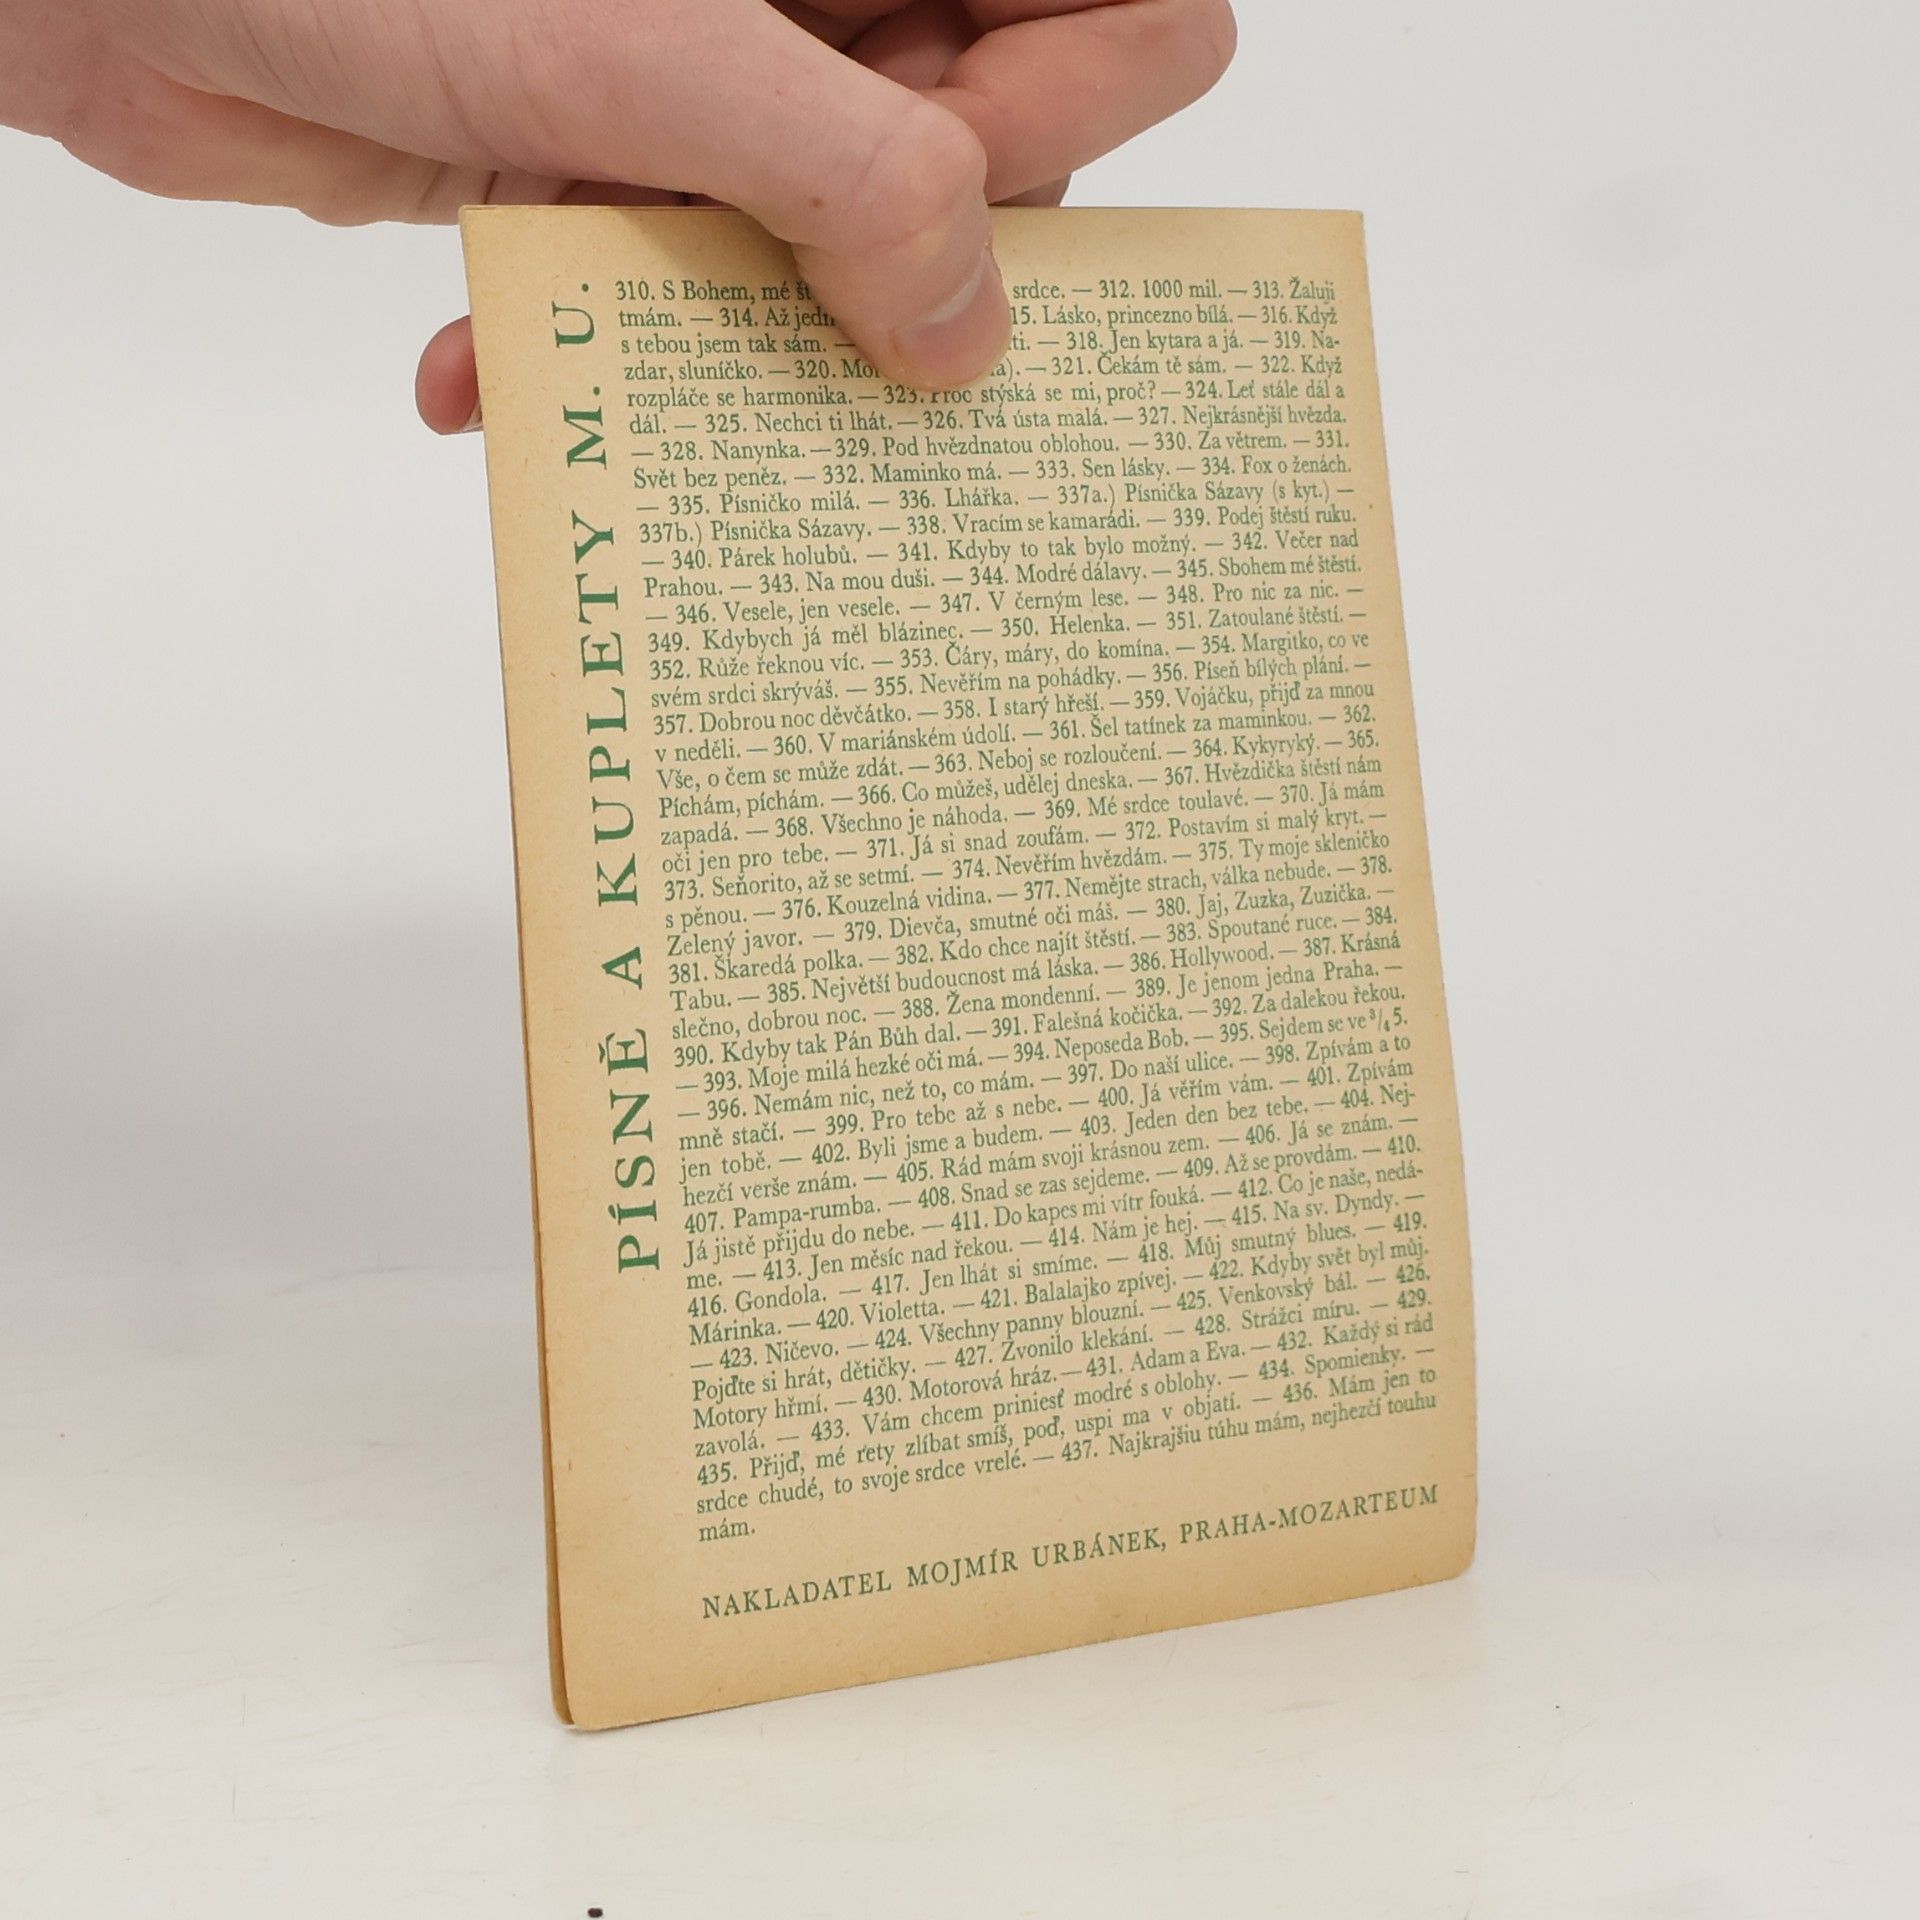 PÍSNĚ A KUPLETY M. U.
310. S Bohem, mé srdce. — 312. 1000 mil. — 313. Žaluji
tmám. — 314. Až 15. Lásko, princezno bílá. — 316. Když
s tebou jsem tak sám. — 318. Jen kytara a já. — 319. Na-
zdar, sluníčko. — 320. — 321. Čekám tě sám. — 322. Když
rozpláče se harmonika. — 323. Proč stýská se mi, proč? — 324. Leť stále dál a
dál. — 325. Nechci ti lhát. — 326. Tvá ústa malá. — 327. Nejkrásnější hvězda.
— 328. Nanynka. — 329. Pod hvězdnatou oblohou. — 330. Za větrem. — 331.
Svět bez peněz. — 332. Maminko má. — 333. Sen lásky. — 334. Fox o ženách.
— 335. Písničko milá. — 336. Lhářka. — 337a.) Písnička Sázavy (s kyt.) —
337b.) Písnička Sázavy. — 338. Vracím se kamarádi. — 339. Podej štěstí ruku.
— 340. Párek holubů. — 341. Kdyby to tak bylo možný. — 342. Večer nad
Prahou. — 343. Na mou duši. — 344. Modré dálavy. — 345. Sbohem mé štěstí.
— 346. Vesele, jen vesele. — 347. V černým lese. — 348. Pro nic za nic. —
349. Kdybych já měl blázinec. — 350. Helenka. — 351. Zatoulané štěstí. —
352. Růže řeknou víc. — 353. Čáry, máry, do komína. — 354. Margitko, co ve
svém srdci skrýváš. — 355. Nevěřím na pohádky. — 356. Píseň bílých plání. —
357. Dobrou noc děvčátko. — 358. I starý hřeší. — 359. Vojáčku, přijď za mnou
v neděli. — 360. V mariánském údolí. — 361. Šel tatínek za maminkou. — 362.
Vše, o čem se může zdát. — 363. Neboj se rozloučení. — 364. Kykyryký. — 365.
Píchám, píchám. — 366. Co můžeš, udělej dneska. — 367. Hvězdička štěstí nám
zapadá. — 368. Všechno je náhoda. — 369. Mé srdce toulavé. — 370. Já mám
oči jen pro tebe. — 371. Já si snad zoufám. — 372. Postavím si malý kryt. —
373. Seňorito, až se setmí. — 374. Nevěřím hvězdám. — 375. Ty moje skleničko
s pěnou. — 376. Kouzelná vidina. — 377. Nemějte strach, válka nebude. — 378.
Zelený javor. — 379. Dievča, smutné oči máš. — 380. Jaj, Zuzka, Zuzička. —
381. Škaredá polka. — 382. Kdo chce najít štěstí. — 383. Spoutané ruce. — 384.
Tabu. — 385. Největší budoucnost má láska. — 386. Hollywood. — 387. Krásná
slečno, dobrou noc. — 388. Žena mondenní. — 389. Je jenom jedna Praha. —
390. Kdyby tak Pán Bůh dal. — 391. Falešná kočička. — 392. Za dalekou řekou.
— 393. Moje milá hezké oči má. — 394. Neposeda Bob. — 395. Sejdem se ve ³/₄ 5.
— 396. Nemám nic, než to, co mám. — 397. Do naší ulice. — 398. Zpívám a to
mně stačí. — 399. Pro tebe až s nebe. — 400. Já věřím vám. — 401. Zpívám
jen tobě. — 402. Byli jsme a budem. — 403. Jeden den bez tebe. — 404. Nej-
hezčí verše znám. — 405. Rád mám svoji krásnou zem. — 406. Já se znám. —
407. Pampa-rumba. — 408. Snad se zas sejdeme. — 409. Až se provdám. — 410.
Já jistě přijdu do nebe. — 411. Do kapes mi vítr fouká. — 412. Co je naše, nedá-
me. — 413. Jen měsíc nad řekou. — 414. Nám je hej. — 415. Na sv. Dyndy. —
416. Gondola. — 417. Jen lhát si smíme. — 418. Můj smutný blues. — 419.
Márinka. — 420. Violetta. — 421. Balalajko zpívej. — 422. Kdyby svět byl můj.
— 423. Ničevo. — 424. Všechny panny blouzní. — 425. Venkovský bál. — 426.
Pojďte si hrát, dětičky. — 427. Zvonilo klekání. — 428. Strážci míru. — 429.
Motory hřmí. — 430. Motorová hráz. — 431. Adam a Eva. — 432. Každý si rád
zavolá. — 433. Vám chcem priniesť modré s oblohy. — 434. Spomienky. —
435. Přijď, mé rety zlíbat smíš, poď, uspi ma v objatí. — 436. Mám jen to
srdce chudé, to svoje srdce vrelé. — 437. Najkrajšiu túhu mám, nejhezčí touhu
mám.
NAKLADATEL MOJMÍR URBÁNEK, PRAHA-MOZARTEUM